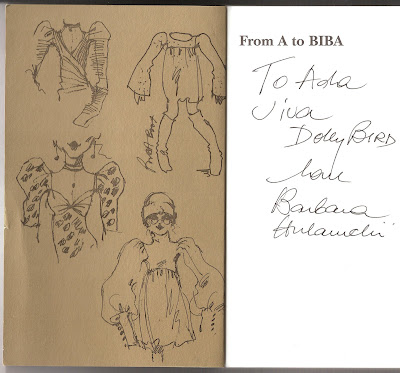 From A to BIBA
To Ada
Viva
Dolly BIRD
love
Barbara
Hulanicki